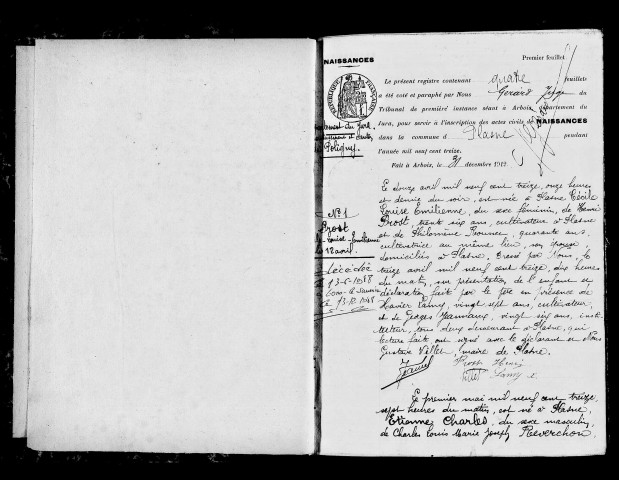 NAISSANCES
Premier feuillet
Le présent registre contenant quatre feuillets
a été coté et paraphé par Nous Gérard Juge du
Tribunal de première instance séant à Arbois, département du
Jura, pour servir à l'inscription des actes civils de NAISSANCES
dans la commune d Plasne pendant
l'année mil neuf cent treize.
Fait à Arbois, le 31 décembre 1912.
RÉPUBLIQUE FRANÇAISE
du Jura
Poligny
N° 1
Prost
Louise Emilienne
12 avril
décédée
13-12-1948
Le douze avril mil neuf cent treize, onze heures
et demie du soir, est née à Plasne Cécile
Louise Emilienne, du sexe féminin, de Henri
Prost, trente six ans, cultivateur à Plasne
et de Philomène, quarante ans,
cultivatrice au même lieu, son épouse
domiciliés à Plasne. Dressé par Nous, le
treize avril mil neuf cent treize, dix heures
du matin, sur présentation de l'enfant et
déclaration faite par le père en présence de
Xavier Lamy, vingt sept ans, cultivateur,
et de Georges, vingt six ans, insti-
tuteur, tous deux demeurant à Plasne, qui
lecture faite ont signé avec le déclarant et Nous
Gustave Villet, maire de Plasne.
Prost Henri
Villet Lamy X.
Le premier mai mil neuf cent treize,
sept heures du matin, est né à Plasne,
Etienne Charles, du sexe masculin,
de Charles Louis Marie Joseph Reverchon,